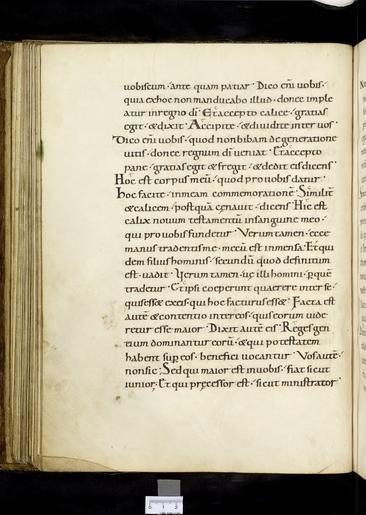 uobiscum · ante quam patiar · Dico eni̅ uobis ·
quia exhoc non manducabo illud · donec imple
atur inregno di̅ · Et accepto calice · gratias
egit · & dixit · Accipite · & diuidite inter uos ·
Dico eni̅ uobis · quod non bibam degeneratione
uitis · donec regnum di̅ ueniat · Et accepto
pane · gratias egit & fregit · & dedit eis dicens ·
Hoc est corpus meu̅ · quod pro uobis datur ·
hoc facite · inmeam commemoratione̅ · Similit̅
& calicem · postqua̅ cenauit · dicens · Hic est
calix nouum testamentu̅ insanguine meo ·
qui pro uobis fundetur · Verum tamen · ecce
manus tradentis me · mecu̅ est inmensa · Et qui
dem filius hominis · secundu̅ quod definitum
est · uadit · Uerum tamen · ue illi homini · p̲ que̅
tradetur · Et ipsi coeperunt quaerere inter se ·
quis ess& ex eis · qui hoc facturus ess& · Facta est
aute̅ & contentio inter eos · quis eorum uide
retur esse maior · Dixit aute̅ eis · Reges gen
tium dominantur eoru̅ · & qui potestatem
habent sup̲ eos · benefici uocantur · Vos aute̅ ·
non sic · Sed qui maior est inuobis · fiat sicut
iunior · Et qui p̲cessor est · sicut ministrator ·
6 1 3